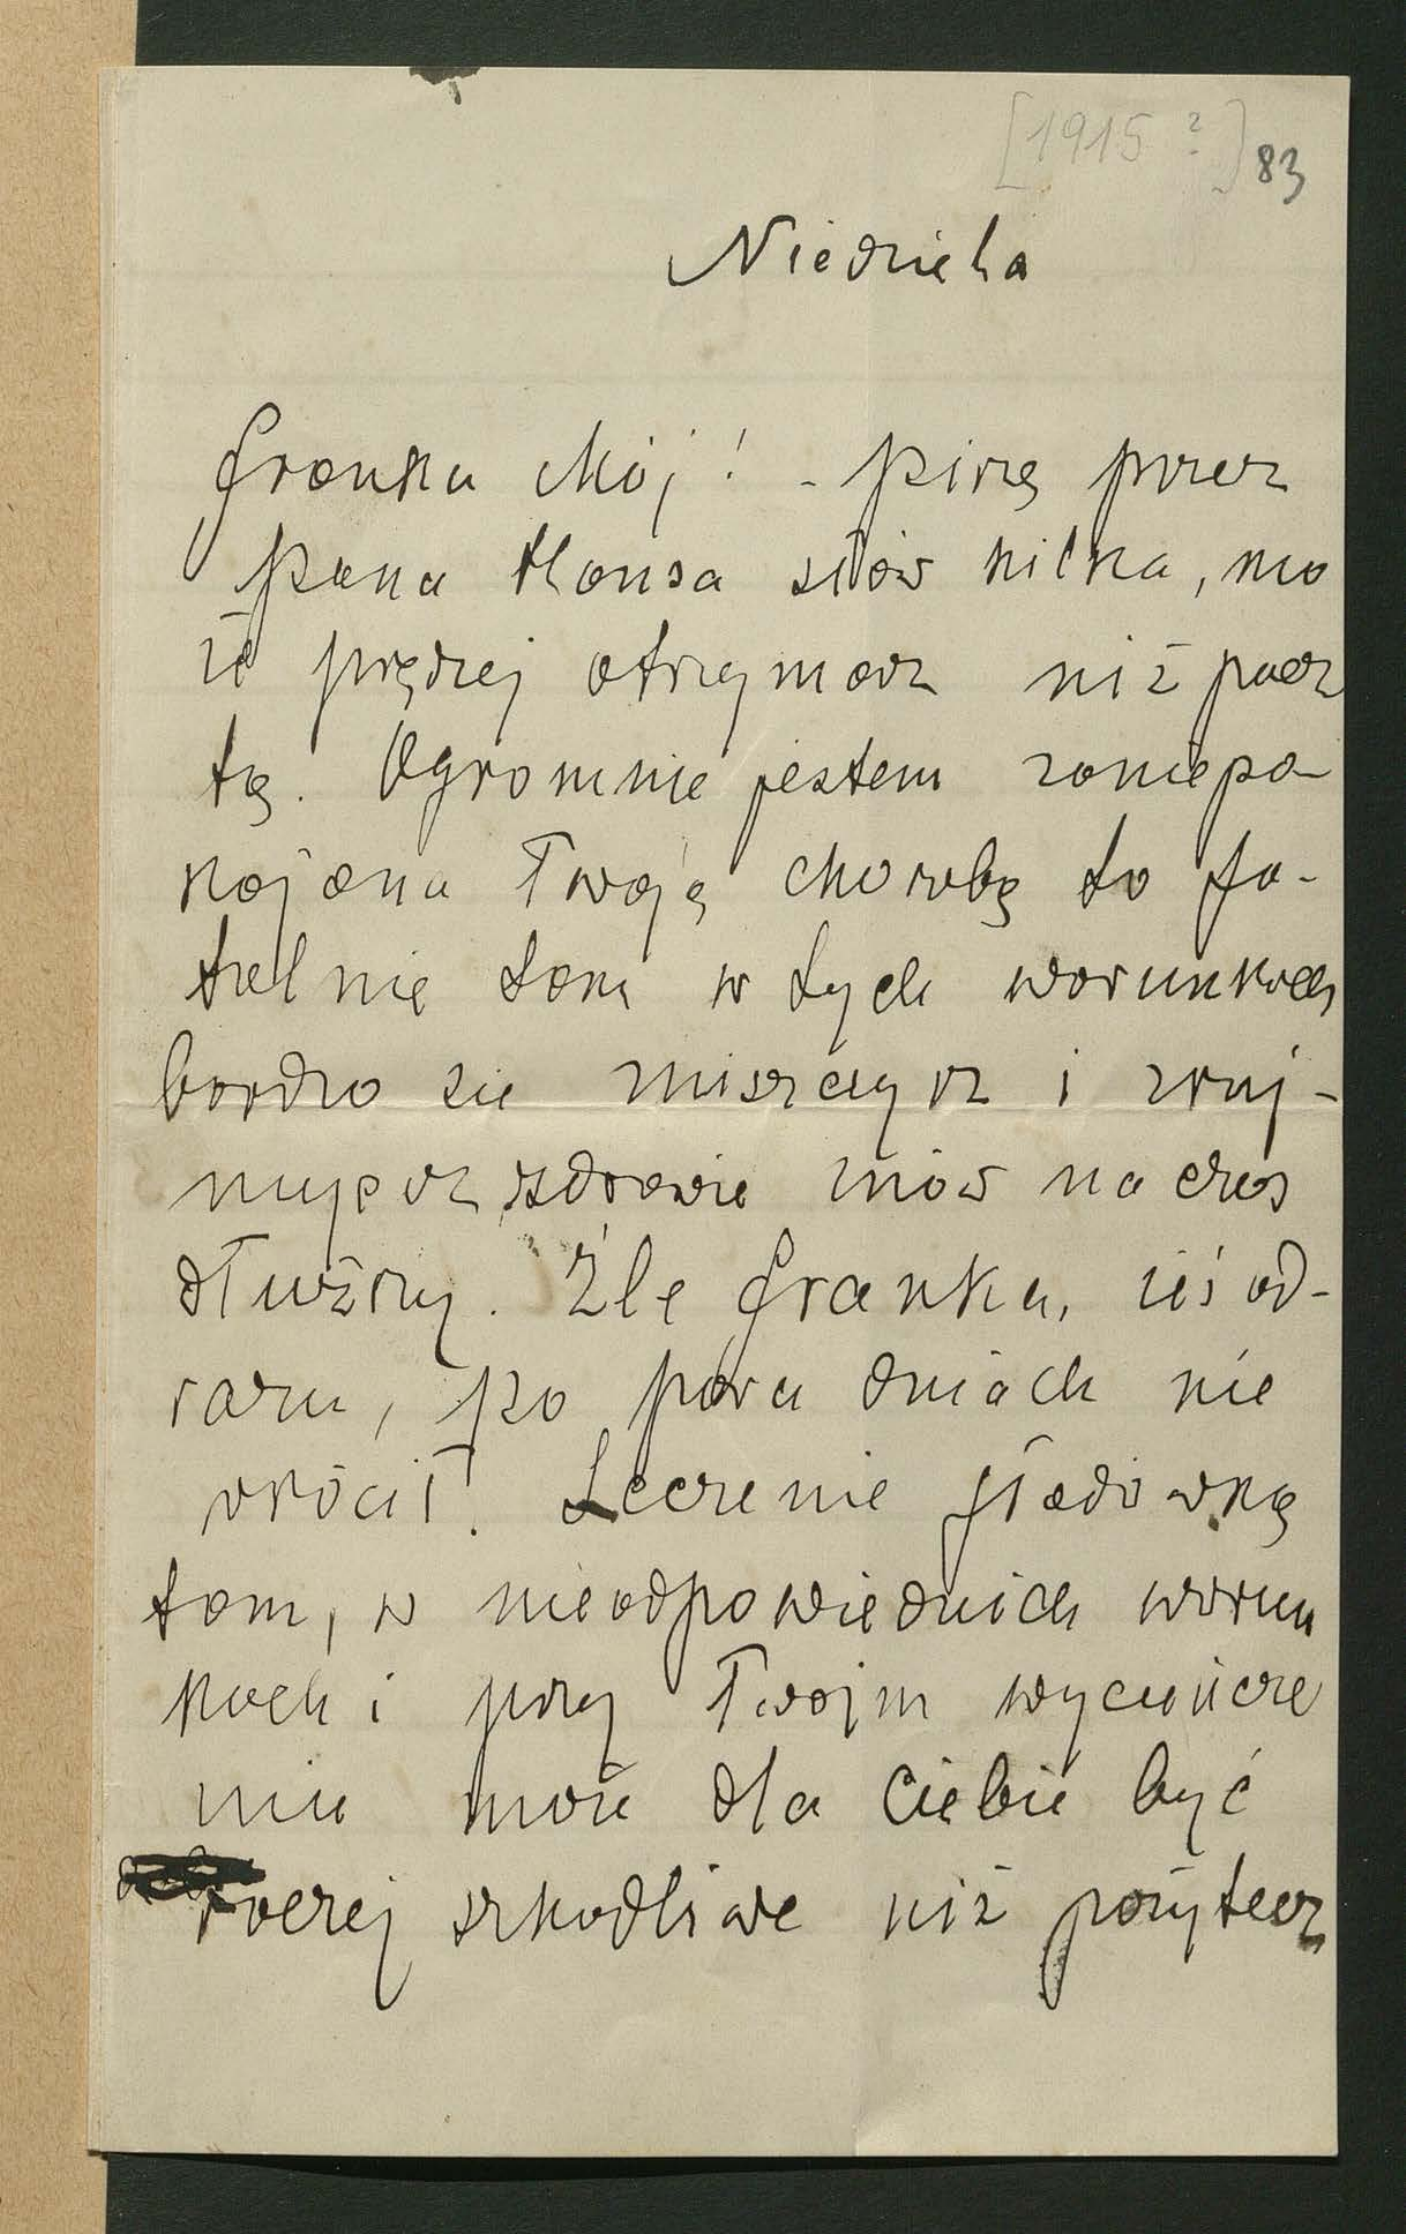 [1915 ?] 83
Niedziela
Franku Mój! - Piszę przez
Pana Hansa słów kilka, mo
że prędzej otrzymasz niż pocz
tą. Ogromnie jestem zaniepo-
kojona Twoją chorobą to fa-
talnie tam w tych warunkach
bardzo się zniszczysz i zruj-
nujesz zdrowie znów na czas
dłuższy. Źle Franku, żeś od-
razu, po paru dniach nie
wrócił. Leczenie głodówką
tam, w nieodpowiednich warun
kach i przy Twojm wycieńcze
niu może dla Ciebie być
raczej szkodliwe niż pożytecz